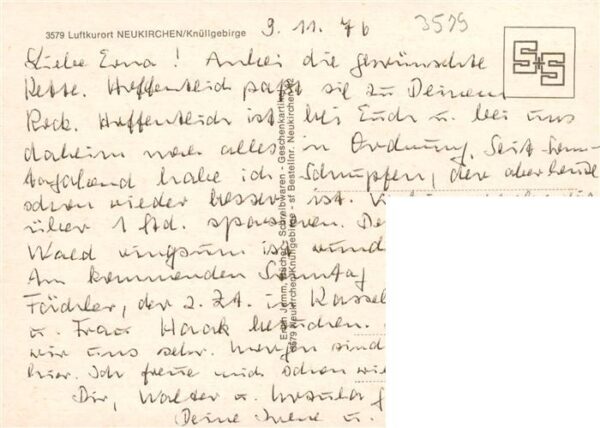 3579 Luftkurort NEUKIRCHEN/Knüllgebirge
9.11.76
3579
S+S
Liebe Erna! Anbei die gewünschte
Kette. Hoffentlich paßt sie zu Deinem
Rock. Hoffentlich ist bei Euch u. bei uns
daheim noch alles in Ordnung. Seit Sonn-
tagabend habe ich Schnupfen, der aber heute
schon wieder besser ist.
über 1 Std.
Wald ringsum ist wund
Am kommenden Sonntag
der 2. Zt. in Kassel
u. Frau Haack besuchen.
wir uns sehr. Morgen sind
hier. Ich freue mich schon wie
Dir, Walter u. Ursula
Deine Irene u.
Schreibwaren - Geschenkartikel
3579 Neukirchen/Knüllgebirge - st Bestellnr. Neukirchen